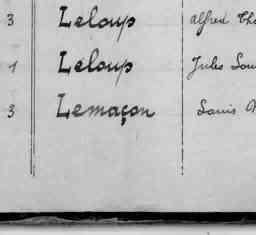 3 Leloup Alfred
1 Leloup Jules
3 Lemaçon Louis